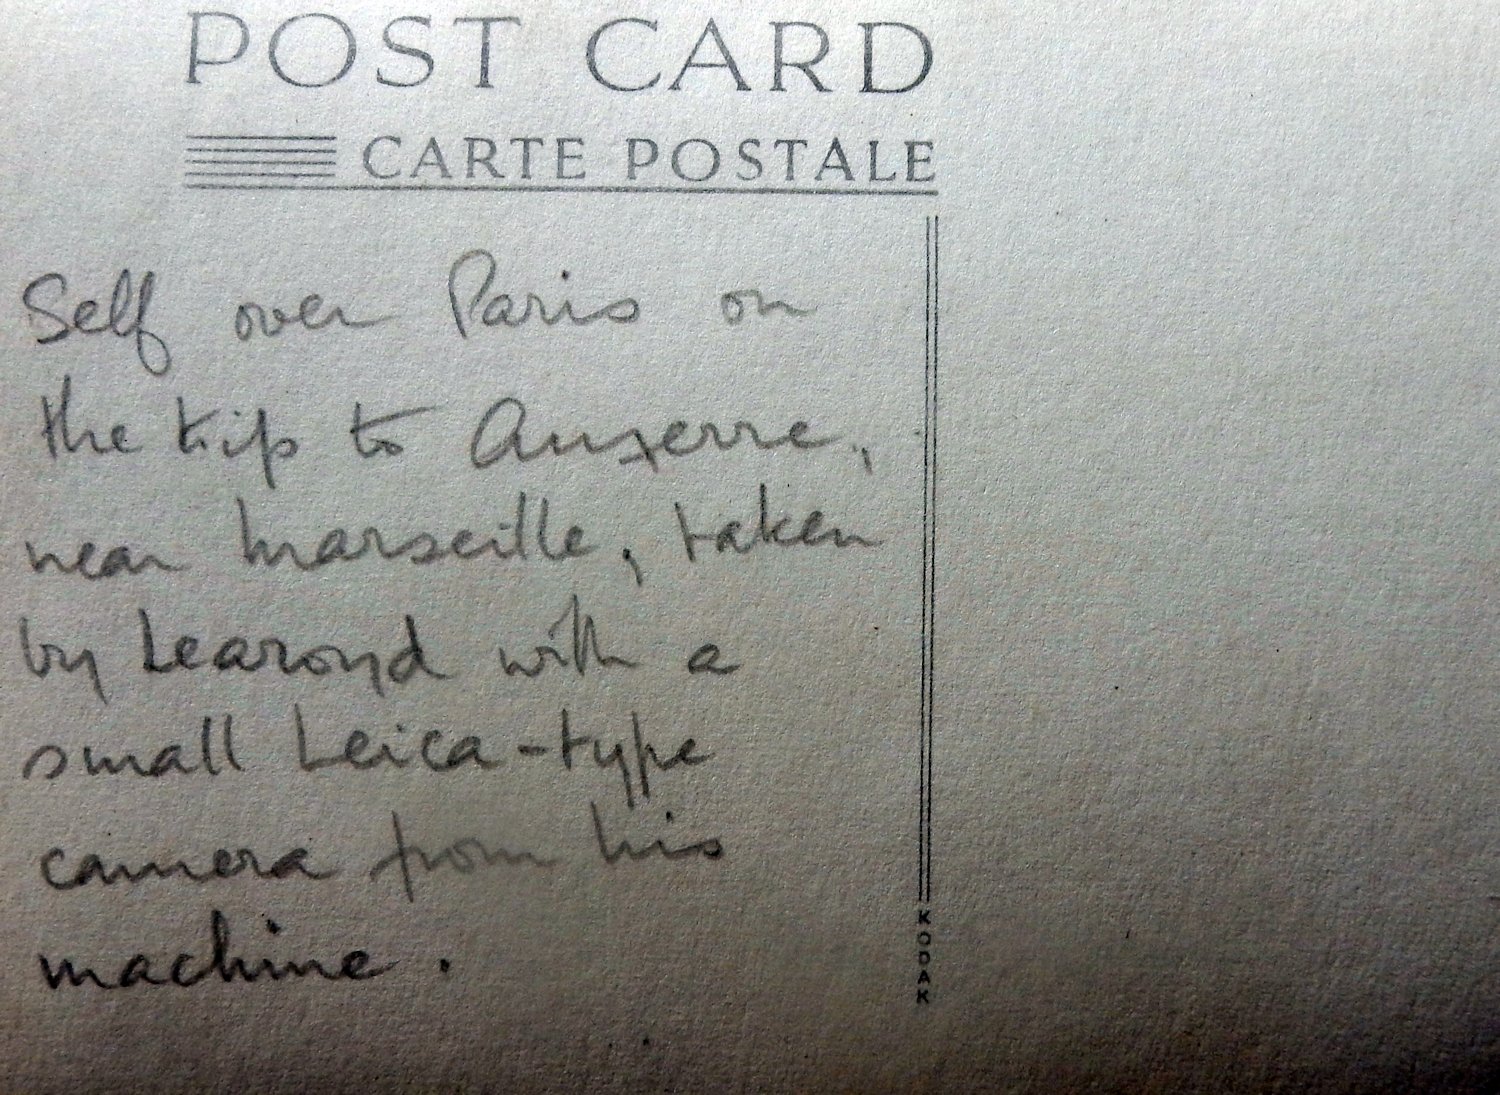 POST CARD
CARTE POSTALE
Self over Paris on
the trip to Auxerre,
near Marseille, taken
by Learoyd with a
small Leica-type
camera from his
machine.
KODAK